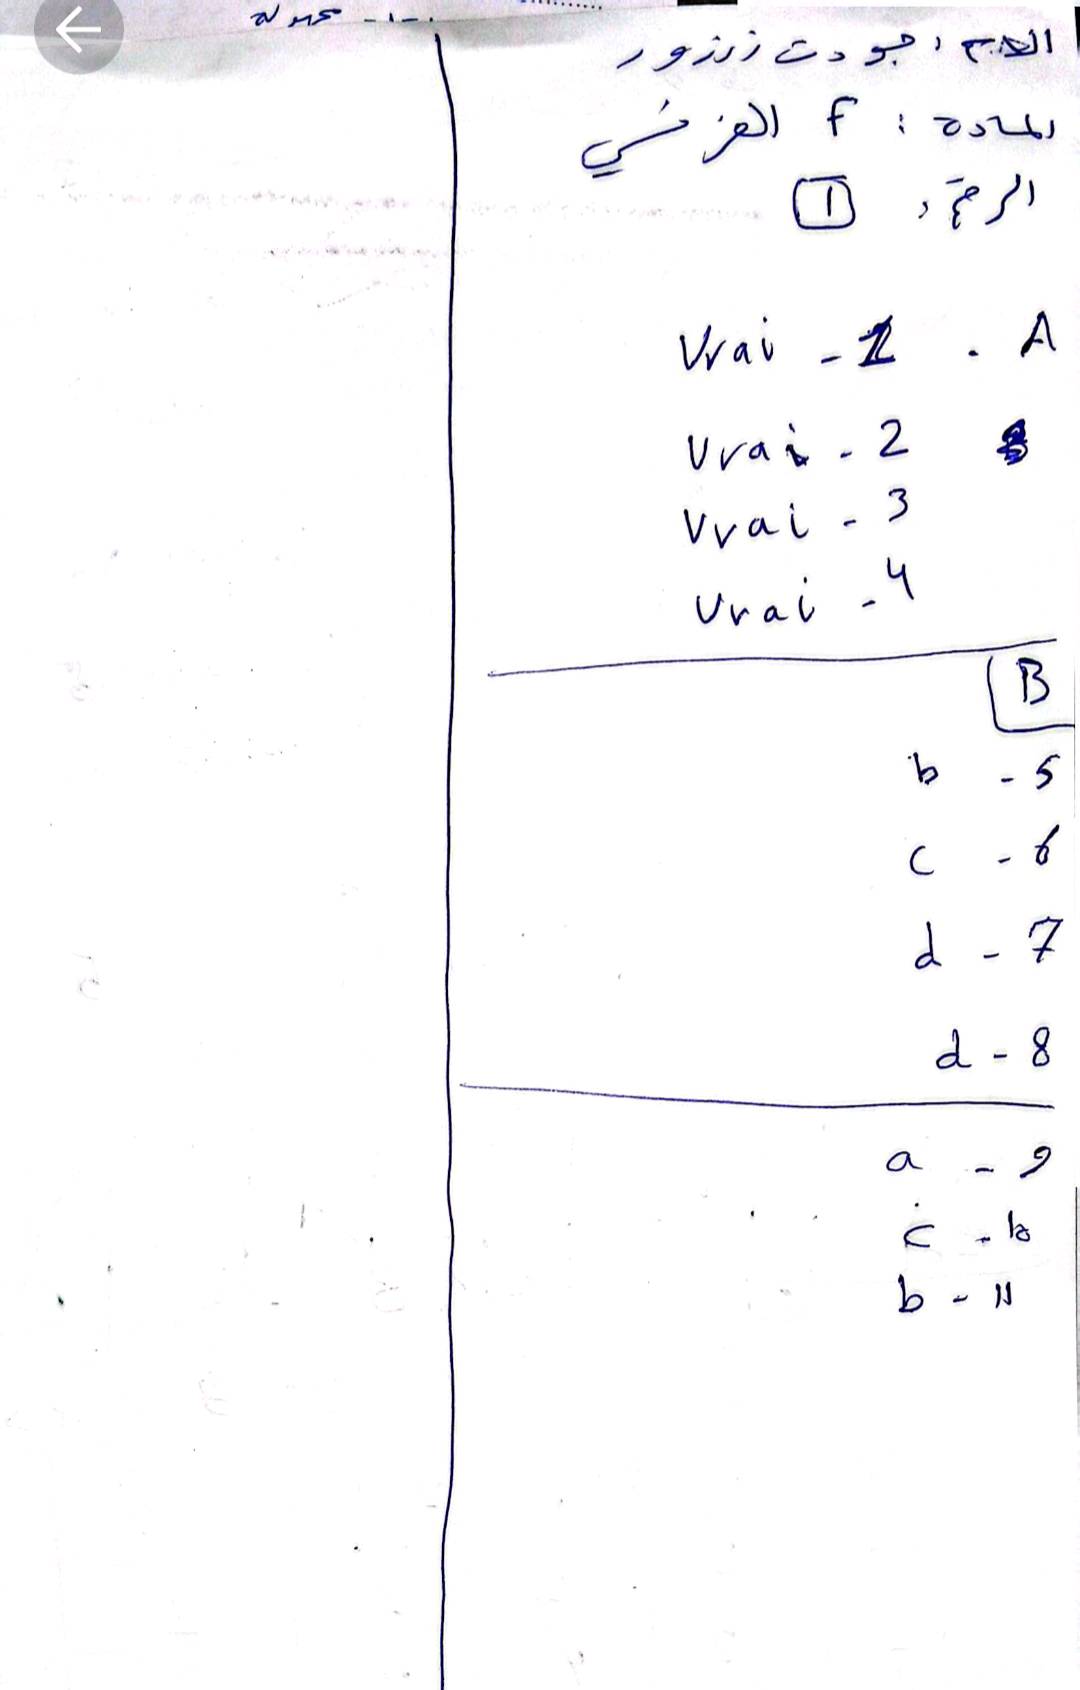 الاسم: جودت زرزور
المادة: f الفرنسي
الرقم: 1
A . 1 - Vrai
2 - Vrai
3 - Vrai
4 - Vrai
B
5 - b
6 - c
7 - d
8 - d
9 - a
10 - c
11 - b